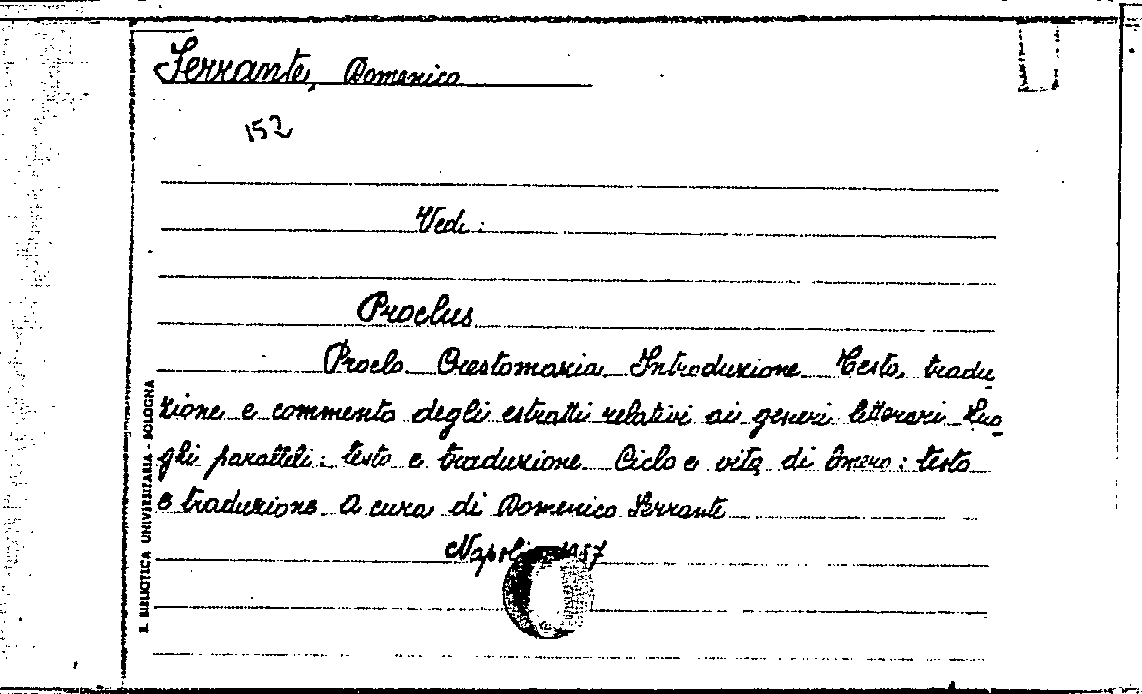 Ferrante, Domenico
152
Vedi:
Proclus
Proclo Crestomazia Introduzione Testo, tradu
zione e commento degli estratti relativi ai generi letterari Luo
ghi paralleli: testo e traduzione Ciclo e vita di Omero: testo
e traduzione A cura di Domenico Ferrante
Napoli 1957
R. BIBLIOTECA UNIVERSITARIA - BOLOGNA